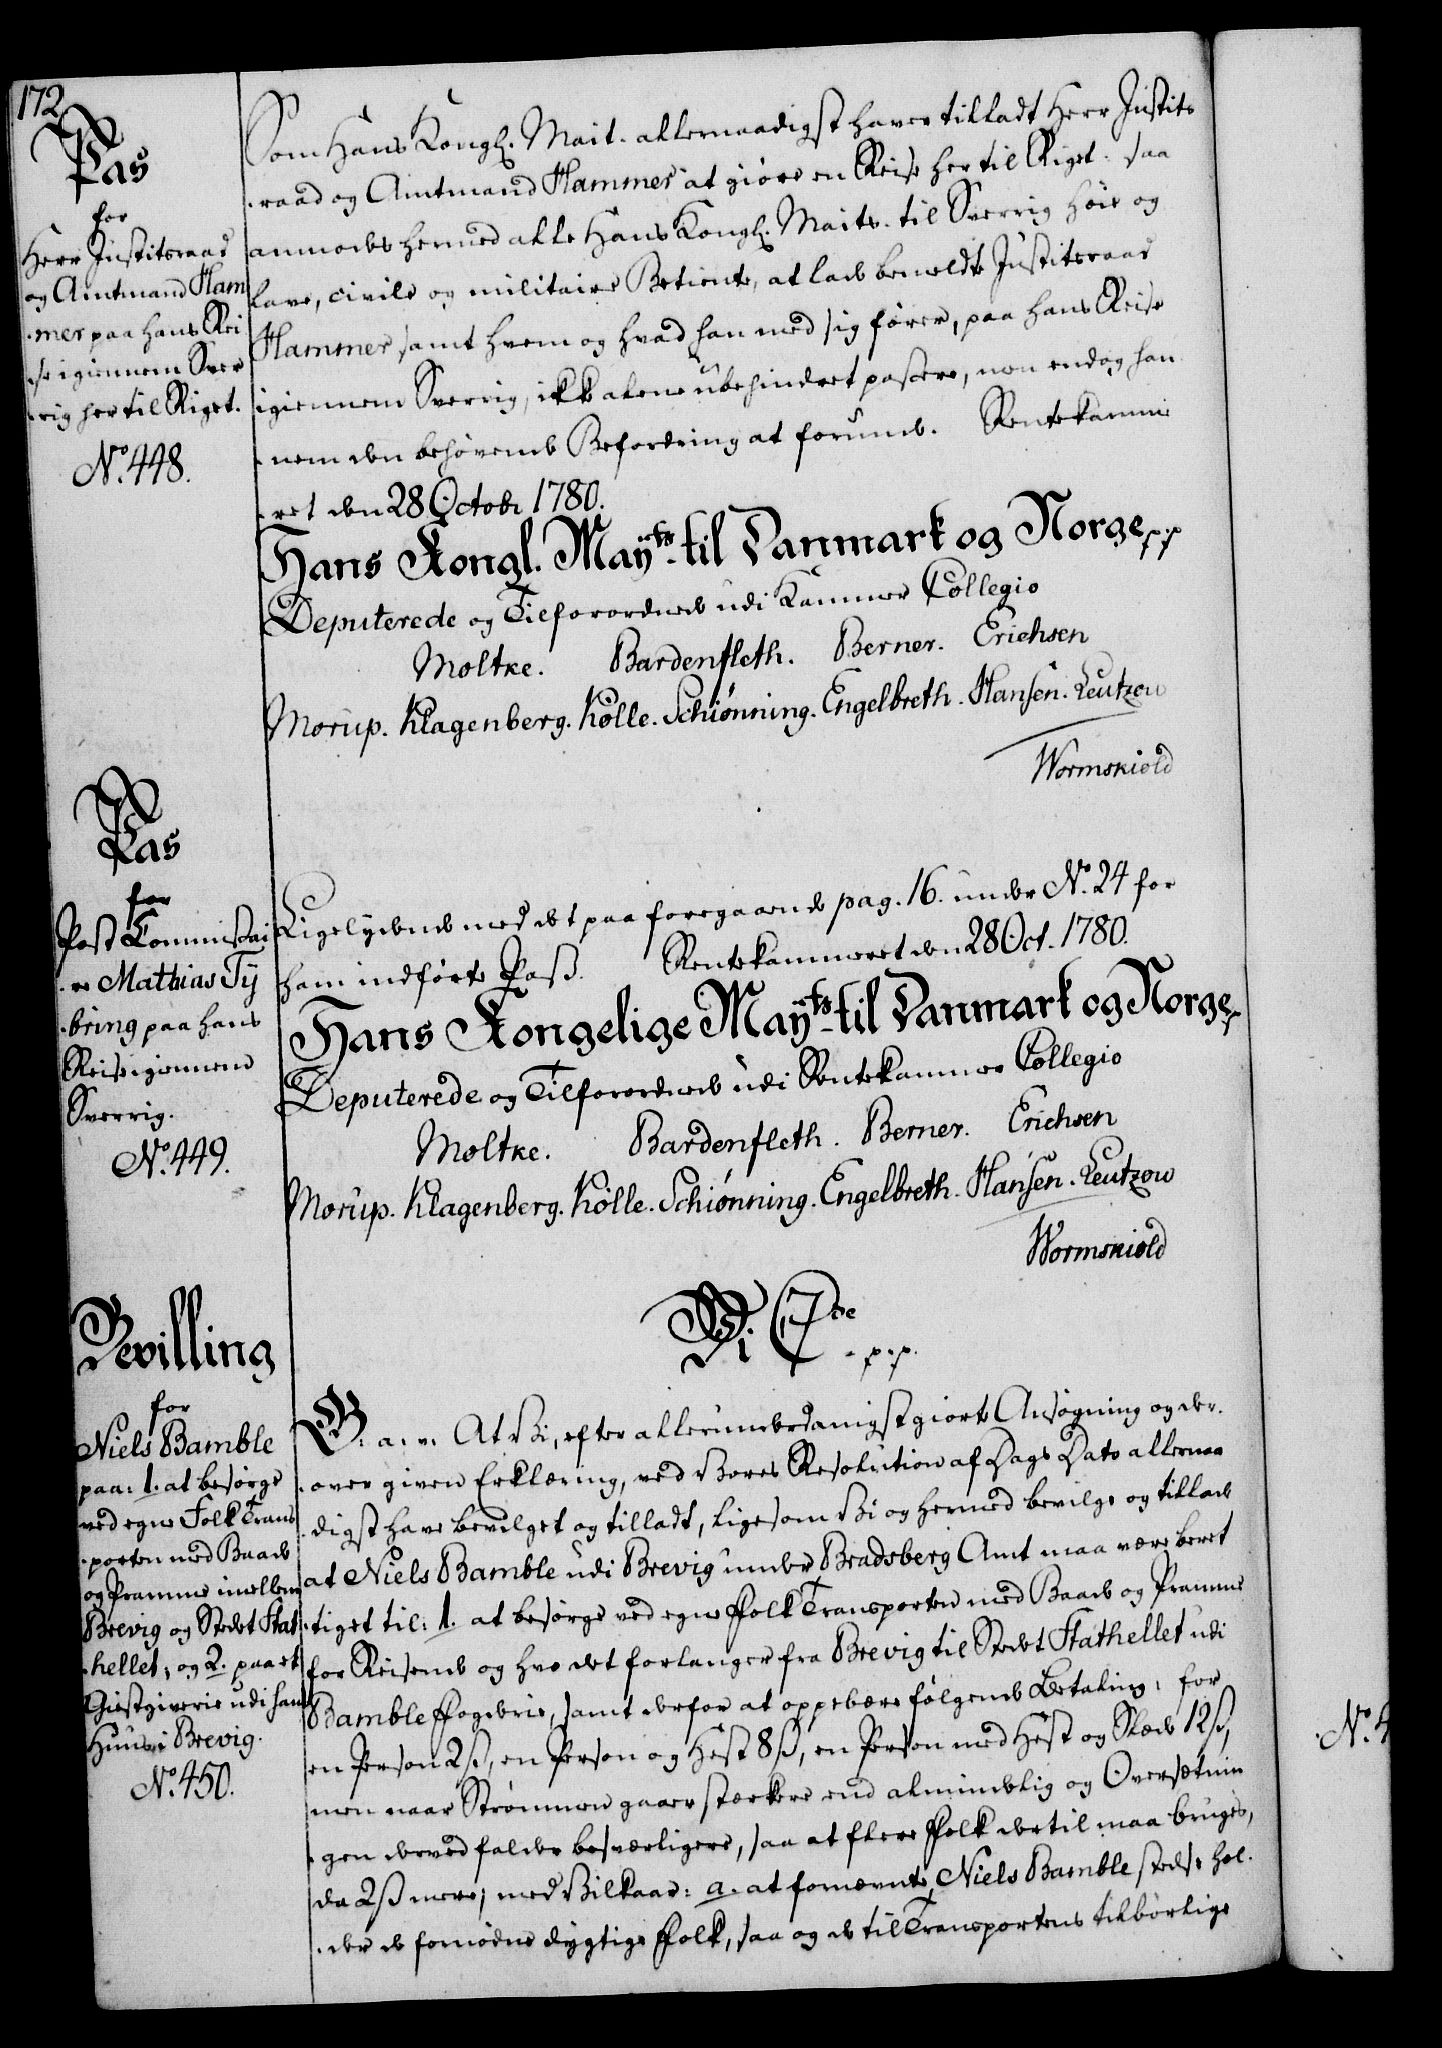 172
Pas
for
Herr Justitsraad
og Amtmand Ham
-mer paa hans Rei
-se igiennem Sver
-rig her til Riget.
No. 448.
Som Hans Kongl. Mait. allernaadigst haver tilladt Herr Justits
-raad og Amtmand Hammer at giøre en Reise her til Riget: saa
anmodes hermed alle Hans Kongl. Maits. til Sverrig høie og
lave, civile og militaire Betiente, at lade bemeldte Justitsraad
Hammer samt hvem og hvad han med sig fører, paa hans Reise
igiennem Sverrig, ikke alene ubehindret passere, men endog han
-nem den behøvende Befordring at forunde. Rentekamme
-ret den 28 Octobr 1780.
Hans Kongl. Mayts. til Danmark og Norge p.p.
Deputerede og Tilforordnede udi Kammer Collegio
Moltke. Bardenfleth. Berner. Erichsen
Morup. Klagenberg. Kølle. Schiønning. Engelbreth. Hansen. Leutzow
Wormskiold
Pas
for
Post Commissai
-re Mathias Ty
-bring paa hans
Reise igiennem
Sverrig.
No. 449.
Ligelydende med det paa foregaaende pag. 16. under No. 24 for
ham indførte Pass. Rentekammeret den 28 Oct. 1780.
Hans Kongelige Mayts. til Danmark og Norge p
Deputerede og Tilforordnede udi Rentekammer Collegio
Moltke. Bardenfleth. Berner. Erichsen
Morup. Klagenberg. Kølle. Schiønning. Engelbreth. Hansen. Leutzow
Wormskiold
Vi C7de
-p.p.
Bevilling
for
Niels Bamble
paa: 1. at besørge
ved egne Folk Trans
-porten med Baade
og Pramme imellem
Brevig og Stedet Stat
-hellet, og 2. paa et
Giestgiverie udi hans
Huus i Brevig.
No. 450.
G. a. v. At Vi, efter allerunderdanigst giorte Ansøgning og der-
-over given Erklæring, ved Vores Resolution af Dags Dato allernaa
digst have bevilget og tilladt, ligesom Vi og hermed bevilge og tillade
at Niels Bamble udi Brevig under Bradsberg Amt maa være beret
-tiget til: 1. at besørge ved egne Folk Transporten med Baade og Pramme
for Reisende og hvo det forlanger fra Brevig til Stedet Stathellet udi
Bamble Fogderie, samt derfor at oppebære følgende Betaling: for
en Person 2ß, en Person og Hest 8ß, en Person med Hest og Slæde 12ß,
men naar Strømmen gaaer stærkere end almindelig og Oversætnin
-gen derved falder besværligere, saa at flere Folk dertil maa bruges,
da 2ß mere; med Vilkaar: a. at fornævnte Niels Bamble stedse hol-
-der de fornødne dygtige Folk, saa og de til Transportens tilbørlige
No. 4